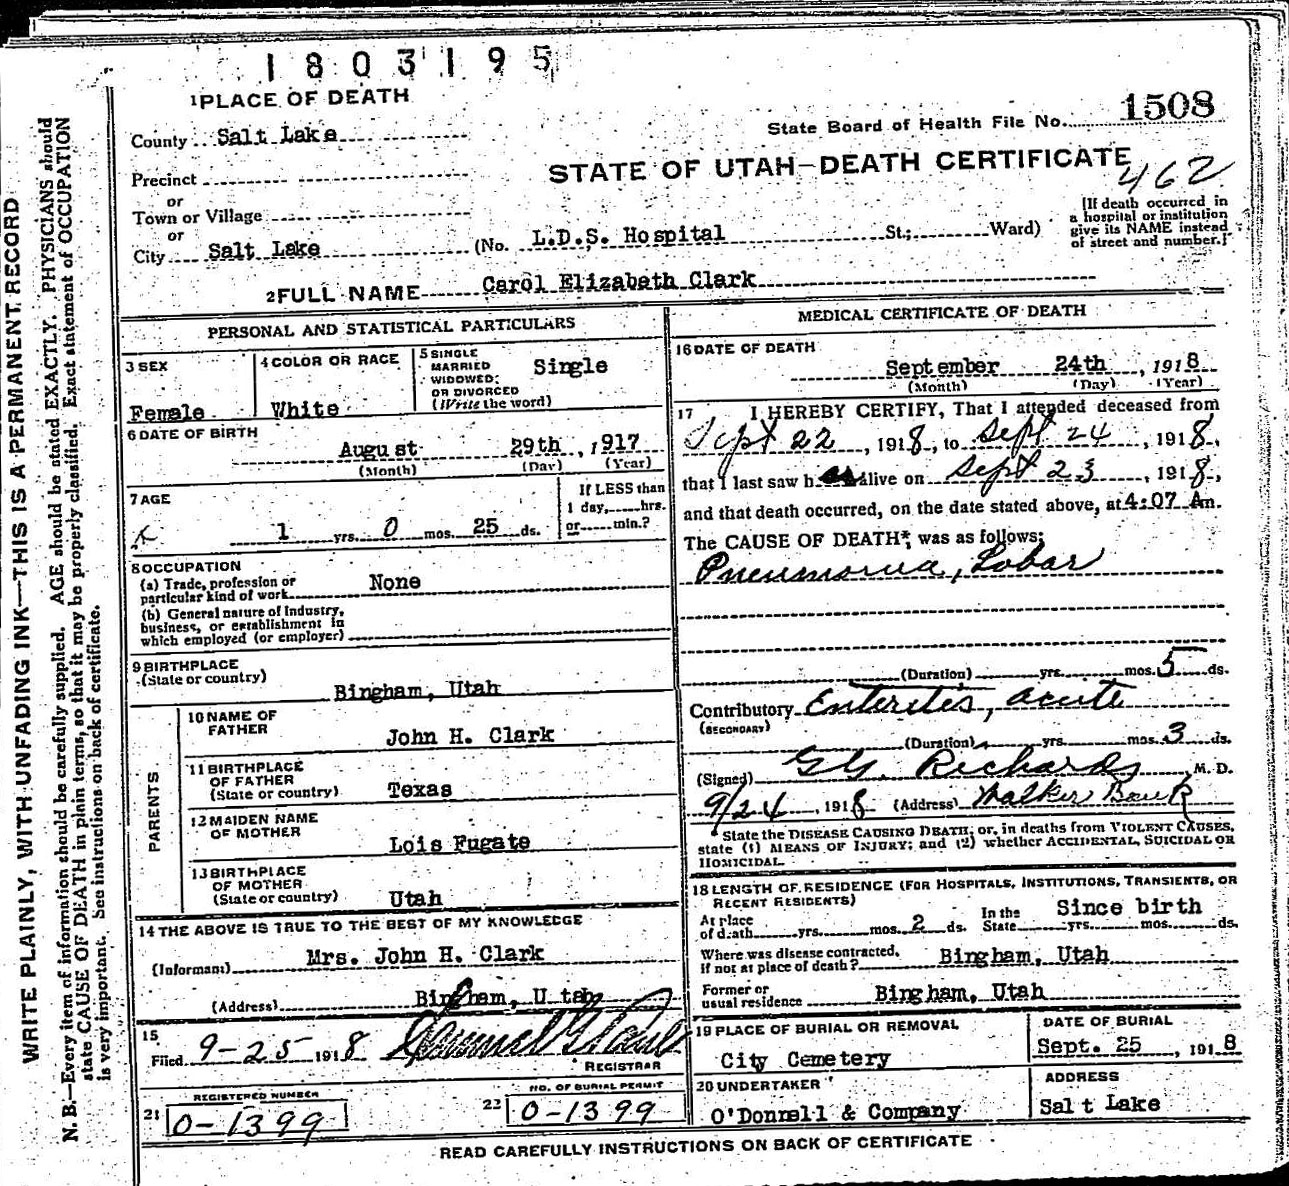 1803195
1 PLACE OF DEATH
State Board of Health File No. 1508
County Salt Lake
STATE OF UTAH—DEATH CERTIFICATE
462
Precinct
or
Town or Village
or
City Salt Lake (No. L.D.S. Hospital St.; Ward)
[If death occurred in
a hospital or institution
give its NAME instead
of street and number.]
2 FULL NAME Carol Elizabeth Clark
PERSONAL AND STATISTICAL PARTICULARS
3 SEX
Female
4 COLOR OR RACE
White
5 SINGLE
MARRIED
WIDOWED;
OR DIVORCED
(Write the word)
Single
6 DATE OF BIRTH
August 29th, 1917
(Month) (Day) (Year)
7 AGE
1 yrs. 0 mos. 25 ds.
If LESS than
1 day, hrs.
or min.?
8 OCCUPATION
(a) Trade, profession or
particular kind of work None
(b) General nature of Industry,
business, or establishment in
which employed (or employer)
9 BIRTHPLACE
(State or country)
Bingham, Utah
PARENTS
10 NAME OF
FATHER
John H. Clark
11 BIRTHPLACE
OF FATHER
(State or country) Texas
12 MAIDEN NAME
OF MOTHER
Lois Fugate
13 BIRTHPLACE
OF MOTHER
(State or country) Utah
14 THE ABOVE IS TRUE TO THE BEST OF MY KNOWLEDGE
(Informant) Mrs. John H. Clark
(Address) Bingham, Utah
15
Filed 9-25 1918
REGISTRAR
REGISTERED NUMBER
21 0-1399
NO. OF BURIAL PERMIT
22 0-1399
MEDICAL CERTIFICATE OF DEATH
16 DATE OF DEATH
September 24th, 1918
(Month) (Day) (Year)
17 I HEREBY CERTIFY, That I attended deceased from
Sept 22, 1918, to Sept 24, 1918,
that I last saw h alive on Sept 23, 1918,
and that death occurred, on the date stated above, at 4:07 Am.
The CAUSE OF DEATH* was as follows:
Pneumonia, Lobar
(Duration) yrs. mos. 5 ds.
Contributory Enterites, acute
(SECONDARY)
(Duration) yrs. mos. 3 ds.
(Signed) G.G. Richards M. D.
9/24, 1918 (Address) Walker Bank
*State the DISEASE CAUSING DEATH; or, in deaths from VIOLENT CAUSES,
state (1) MEANS OF INJURY; and (2) whether ACCIDENTAL, SUICIDAL OR
HOMICIDAL.
18 LENGTH OF RESIDENCE (FOR HOSPITALS, INSTITUTIONS, TRANSIENTS, OR
RECENT RESIDENTS)
At place
of death yrs. mos. 2 ds.
In the
State yrs. mos. ds.
Since birth
Where was disease contracted,
if not at place of death? Bingham, Utah
Former or
usual residence Bingham, Utah
19 PLACE OF BURIAL OR REMOVAL
City Cemetery
DATE OF BURIAL
Sept. 25, 1918
20 UNDERTAKER
O'Donnell & Company
ADDRESS
Salt Lake
READ CAREFULLY INSTRUCTIONS ON BACK OF CERTIFICATE
WRITE PLAINLY, WITH UNFADING INK—THIS IS A PERMANENT RECORD
N. B.—Every item of information should be carefully supplied. AGE should be stated EXACTLY. PHYSICIANS should
state CAUSE OF DEATH in plain terms, so that it may be properly classified. Exact statement of OCCUPATION
is very important. See instructions on back of certificate.